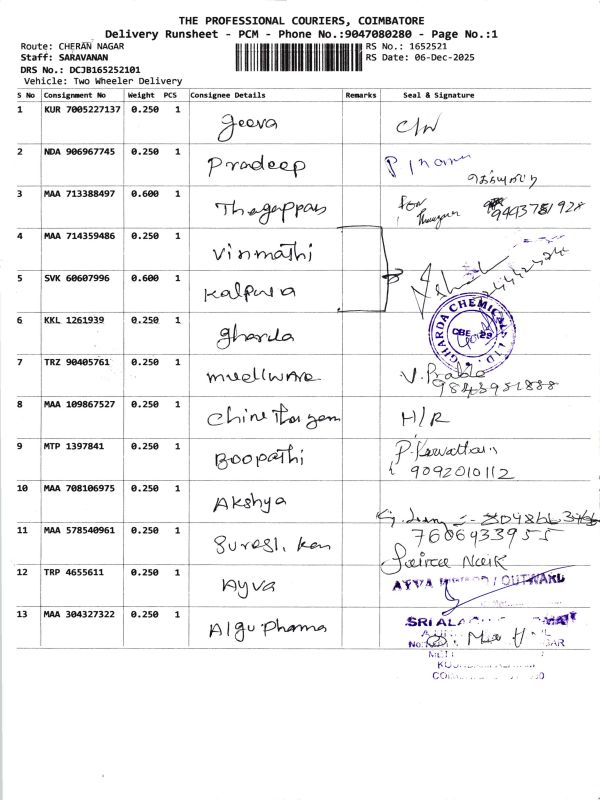 THE PROFESSIONAL COURIERS, COIMBATORE
Delivery Runsheet - PCM - Phone No.:9047080280 - Page No.:1
Route: CHERAN NAGAR
RS No.: 1652521
Staff: SARAVANAN
RS Date: 06-Dec-2025
DRS No.: DCJB165252101
Vehicle: Two Wheeler Delivery
S No Consignment No Weight PCS Consignee Details Remarks Seal & Signature
1 KUR 7005227137 0.250 1 Jeeva C/W
2 NDA 906967745 0.250 1 Pradeep
3 MAA 713388497 0.600 1 for
4 MAA 714359486 0.250 1 Vinmathi
5 SVK 60607996 0.600 1 Kalpura
6 KKL 1261939 0.250 1 Gharda GHARDA CHEMICALS LTD. CBE
7 TRZ 90405761 0.250 1 V. Prabhu
9843951888
8 MAA 109867527 0.250 1 H/R
9 MTP 1397841 0.250 1 Boopathi
9092010112
10 MAA 708106975 0.250 1 Akshya
11 MAA 578540961 0.250 1 7606933955
Naik
12 TRP 4655611 0.250 1 Ayva AYVA / OUTWARD
13 MAA 304327322 0.250 1 Algu Pharma SRI